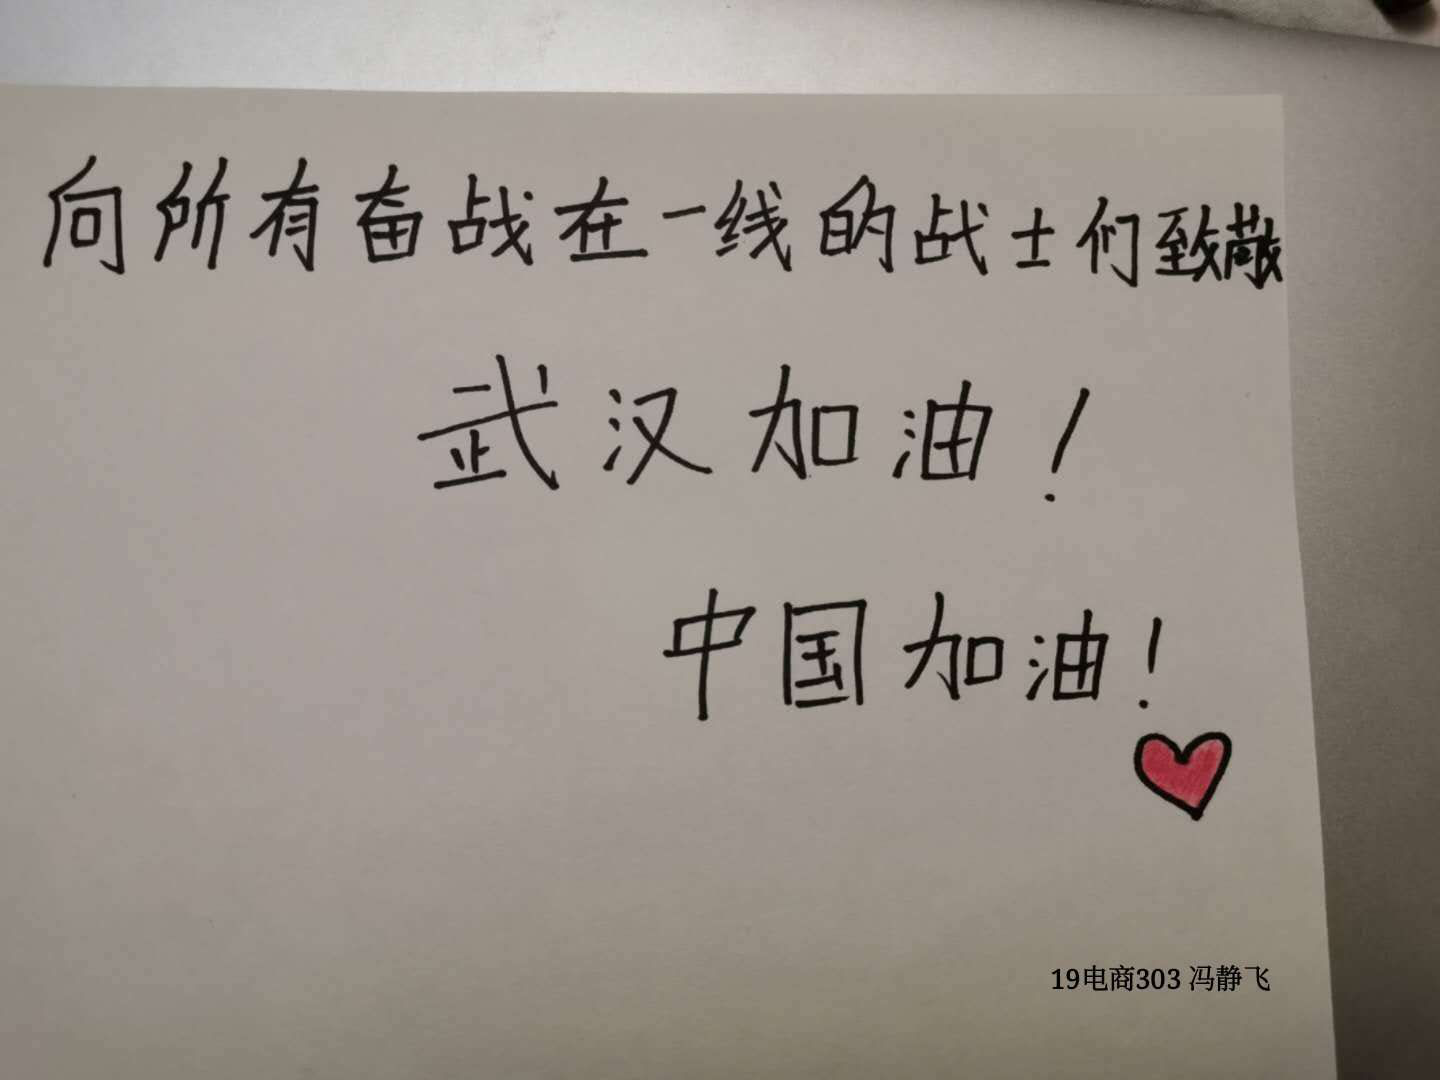 向所有奋战在一线的战士们致敬
武汉加油！
中国加油！
19电商303 冯静飞